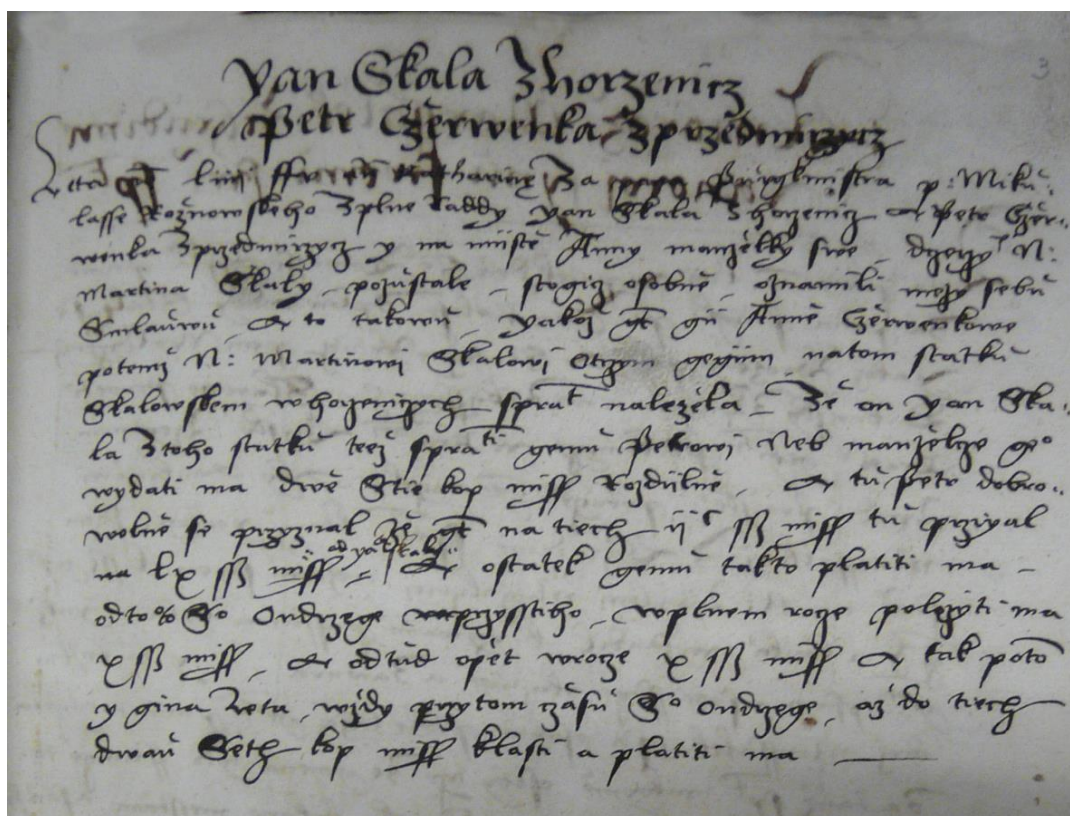 Yan Skala Zhorzenicz
Petr Czerwenka Zprzedmirzicz
Leta liiij Za Purgkmistra p: Miku:
lasse Rožnowskeho Zplne Raddy Yan Skala Zhorzenicz & Petr Czer:
wenka Zprzedmirzycz y na mistě Anny manželky swe dczery N:
Martina Skaly pozůstale stogicz osobně oznamili mezy sebu
Smlauwu & to takowu Yakož gt gii Anně Czerwenkowe
potomň N: Martinowi Skalowi Otczym gegiim natom statku
Skalowskem whorzeniczych sprat naležela Že on Yan Ska:
la Ztoho statku teež spra ti gemu Petrowi Neb manželcze ge°
wydati ma dwě Stie kop miss Rozdiilně & tu Petr dobro:
wolně se przyznal že gt na tiech ijC ssß miss tu prziyal
na lx ssß miss od yana skaly & ostatek gemu takto platiti ma
odto% So Ondrzege przysstiho wplnem rocze položyti ma
x ssß miss & odtud opět wrocze x ssß miss & tak poto
y gina Leta wždy przytom czasu So Ondrzege až do tiech
dwau Seth kop miss klasti a platiti ma